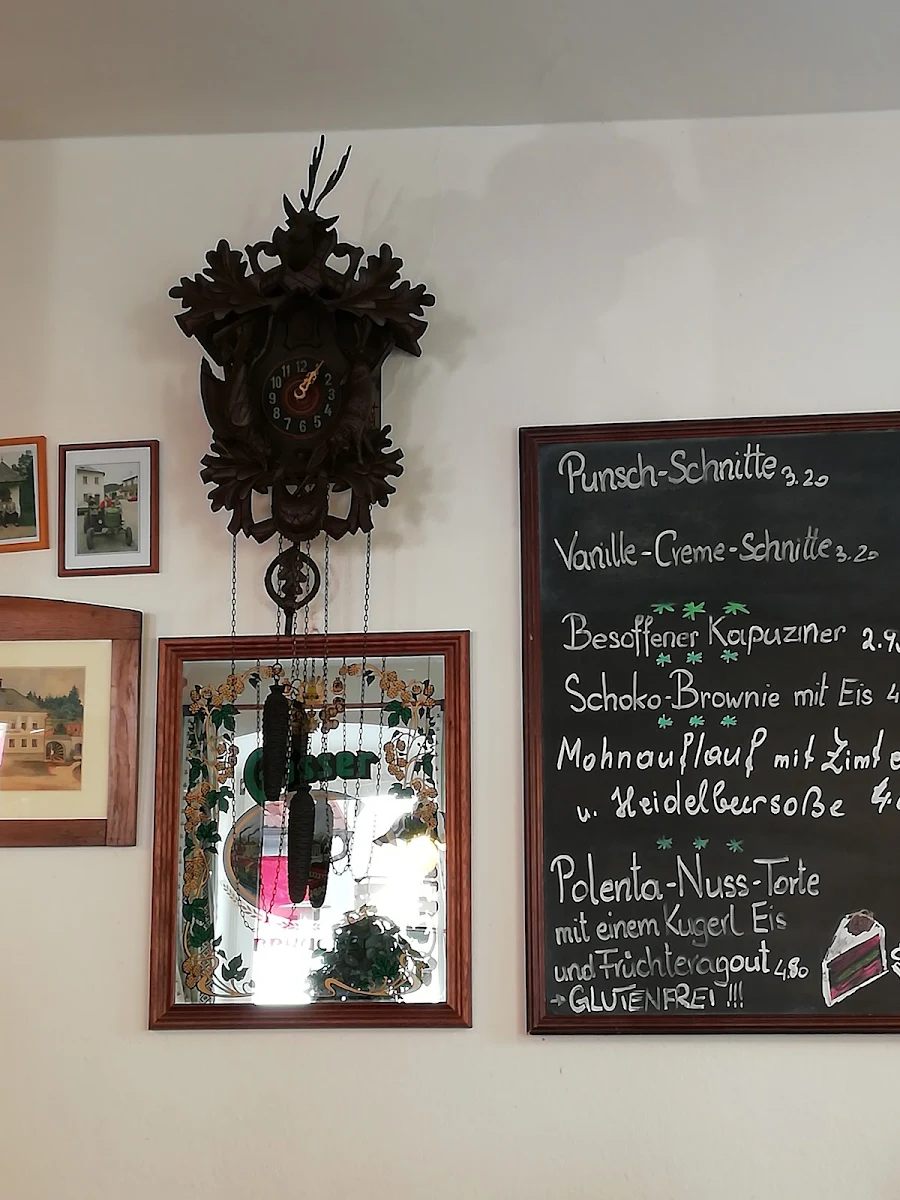 11 12
10 2
9 3
8 4
7 6 5
Gösser
Punsch-Schnitte 3.20
Vanille-Creme-Schnitte 3.20
Besoffener Kapuziner 2.9
Schoko-Brownie mit Eis 4
Mohnauflauf mit Zimt
u. Heidelbeersoße 4.
Polenta-Nuss-Torte
mit einem Kugerl Eis
und Früchteragout 4,80
→ GLUTENFREI !!!